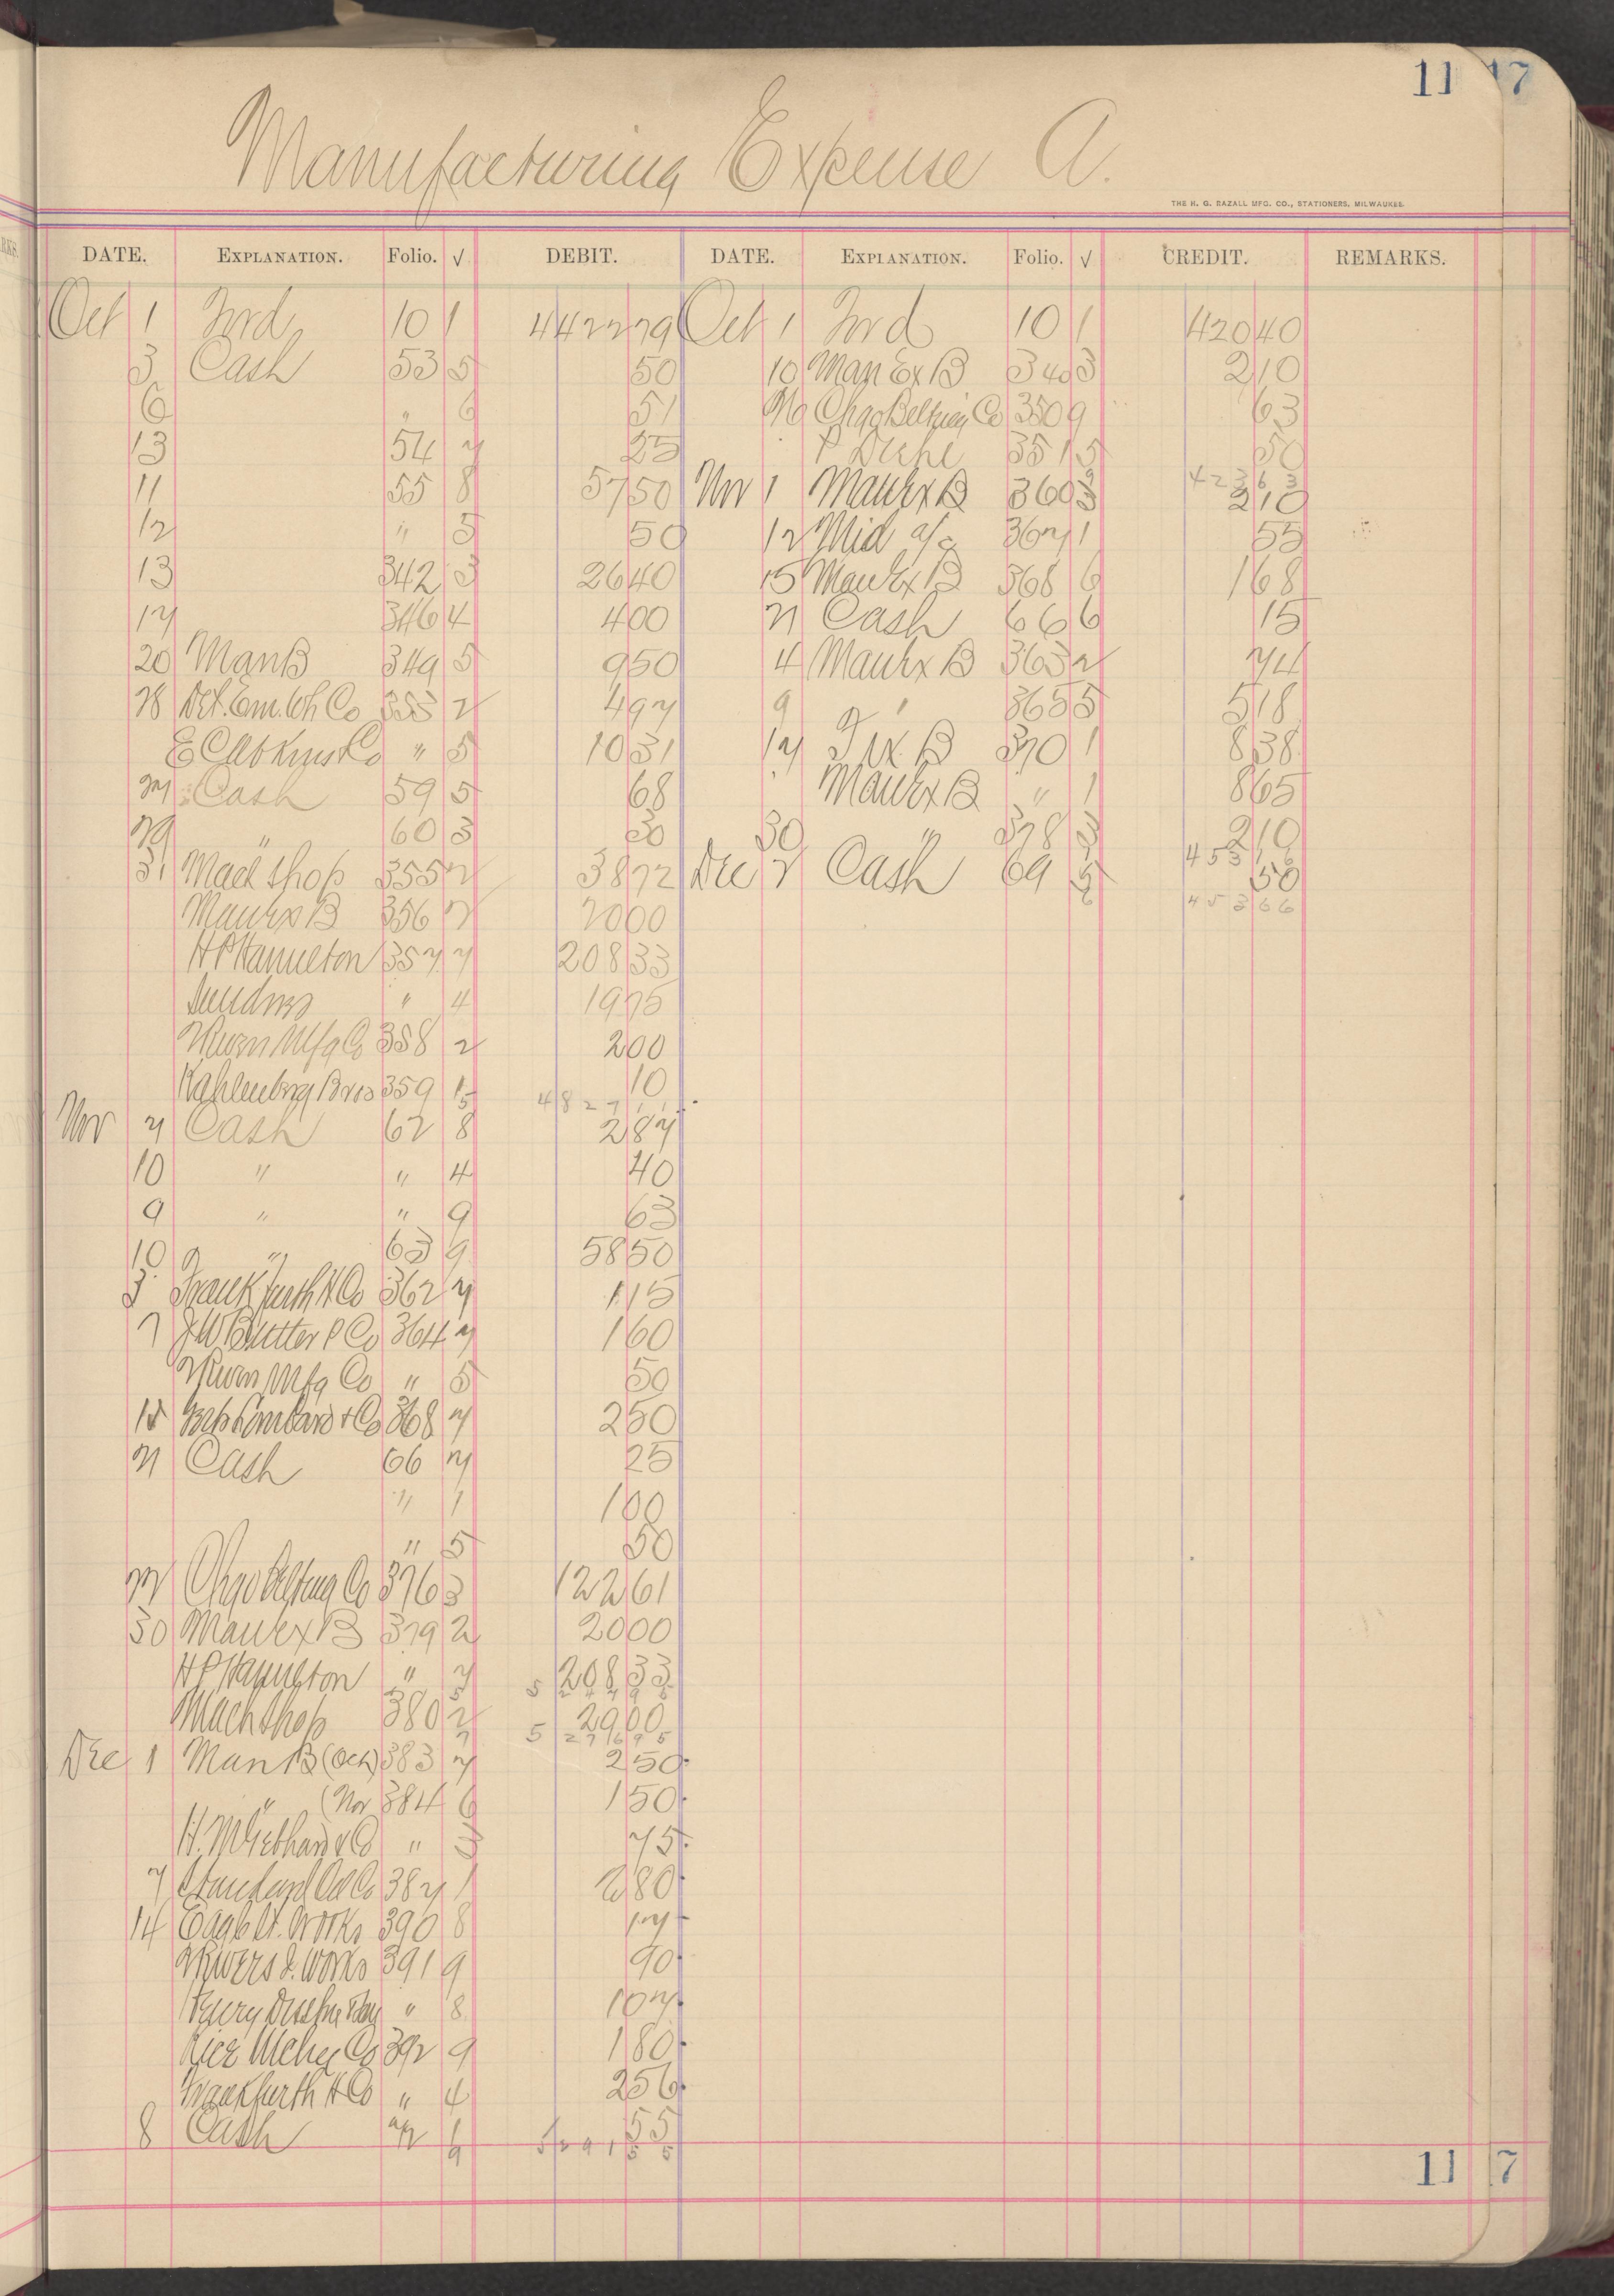 11 17
Manufacturing Expense A.
THE H. G. RAZALL MFG. CO., STATIONERS, MILWAUKEE.
DATE. EXPLANATION. Folio. √ DEBIT. DATE. EXPLANATION. Folio. √ CREDIT. REMARKS.
Oct 1 Ford 10 1 4422 79 Oct 1 Ford 10 1 420 40
3 Cash 53 5 50 10 Man Ex B 340 3 2 10
6 " 6 51 Chgo Belting Co 350 9 63
13 54 7 25 P Diehl 351 5 50
11 55 8 57 50 Nov 1 Man Ex B 360 3 2 10
423 63
12 " 5 50 12 Mid a/c 367 1 55
13 342 3 26 40 15 Man Ex B 368 6 1 68
17 346 4 4 00 21 Cash 66 6 15
20 Man B 349 5 9 50 4 Man Ex B 363 2 74
28 Det. Em. Wh Co 353 2 4 97 9 " 365 5 5 18
E C Atkins & Co " 5 10 31 17 370 1 8 38
27 Cash 59 5 68 Man Ex B " 1 8 65
29 " 60 3 30 30 " 378 3 2 10
31 Mach Shop 355 2 38 72 Dec 2 Cash 69 5 50
453 16
Man Ex B 356 7 20 00
453 66
H P Hamilton 357 7 208 33
Sundries " 4 19 75
2 Rivers Mfg Co 358 2 2 00
Kahlenberg Bros 359 1 10
Nov 7 Cash 62 8 2 87
10 " " 4 40
9 " " 9 63
10 " 63 9 58 50
3 Frankfurth H Co 362 7 1 15
7 J W Butler P Co 364 7 1 60
2 Rivers Mfg Co " 5 50
15 Lombard & Co 368 7 2 50
21 Cash 66 7 25
" 1 1 00
" 5 50
22 Chgo Belting Co 376 3 122 61
30 Man Ex B 379 2 20 00
H P Hamilton " 7 208 33
Mach Shop 380 2 29 00
5 276 95
Dec 1 Man B (Oct) 383 7 2 50
" (Nov 384 6 1 50
& Co " 3 75
7 Standard Oil Co 387 1 2 80
14 Eagle Lt. Works 390 8
2 Rivers I. Works 391 9 90
Henry Disston & Son " 8 1 07
Rice Mchy Co 392 9 1 80
Frankfurth H Co " 4 2 56
8 Cash 72 1 55
5291 55
11 17